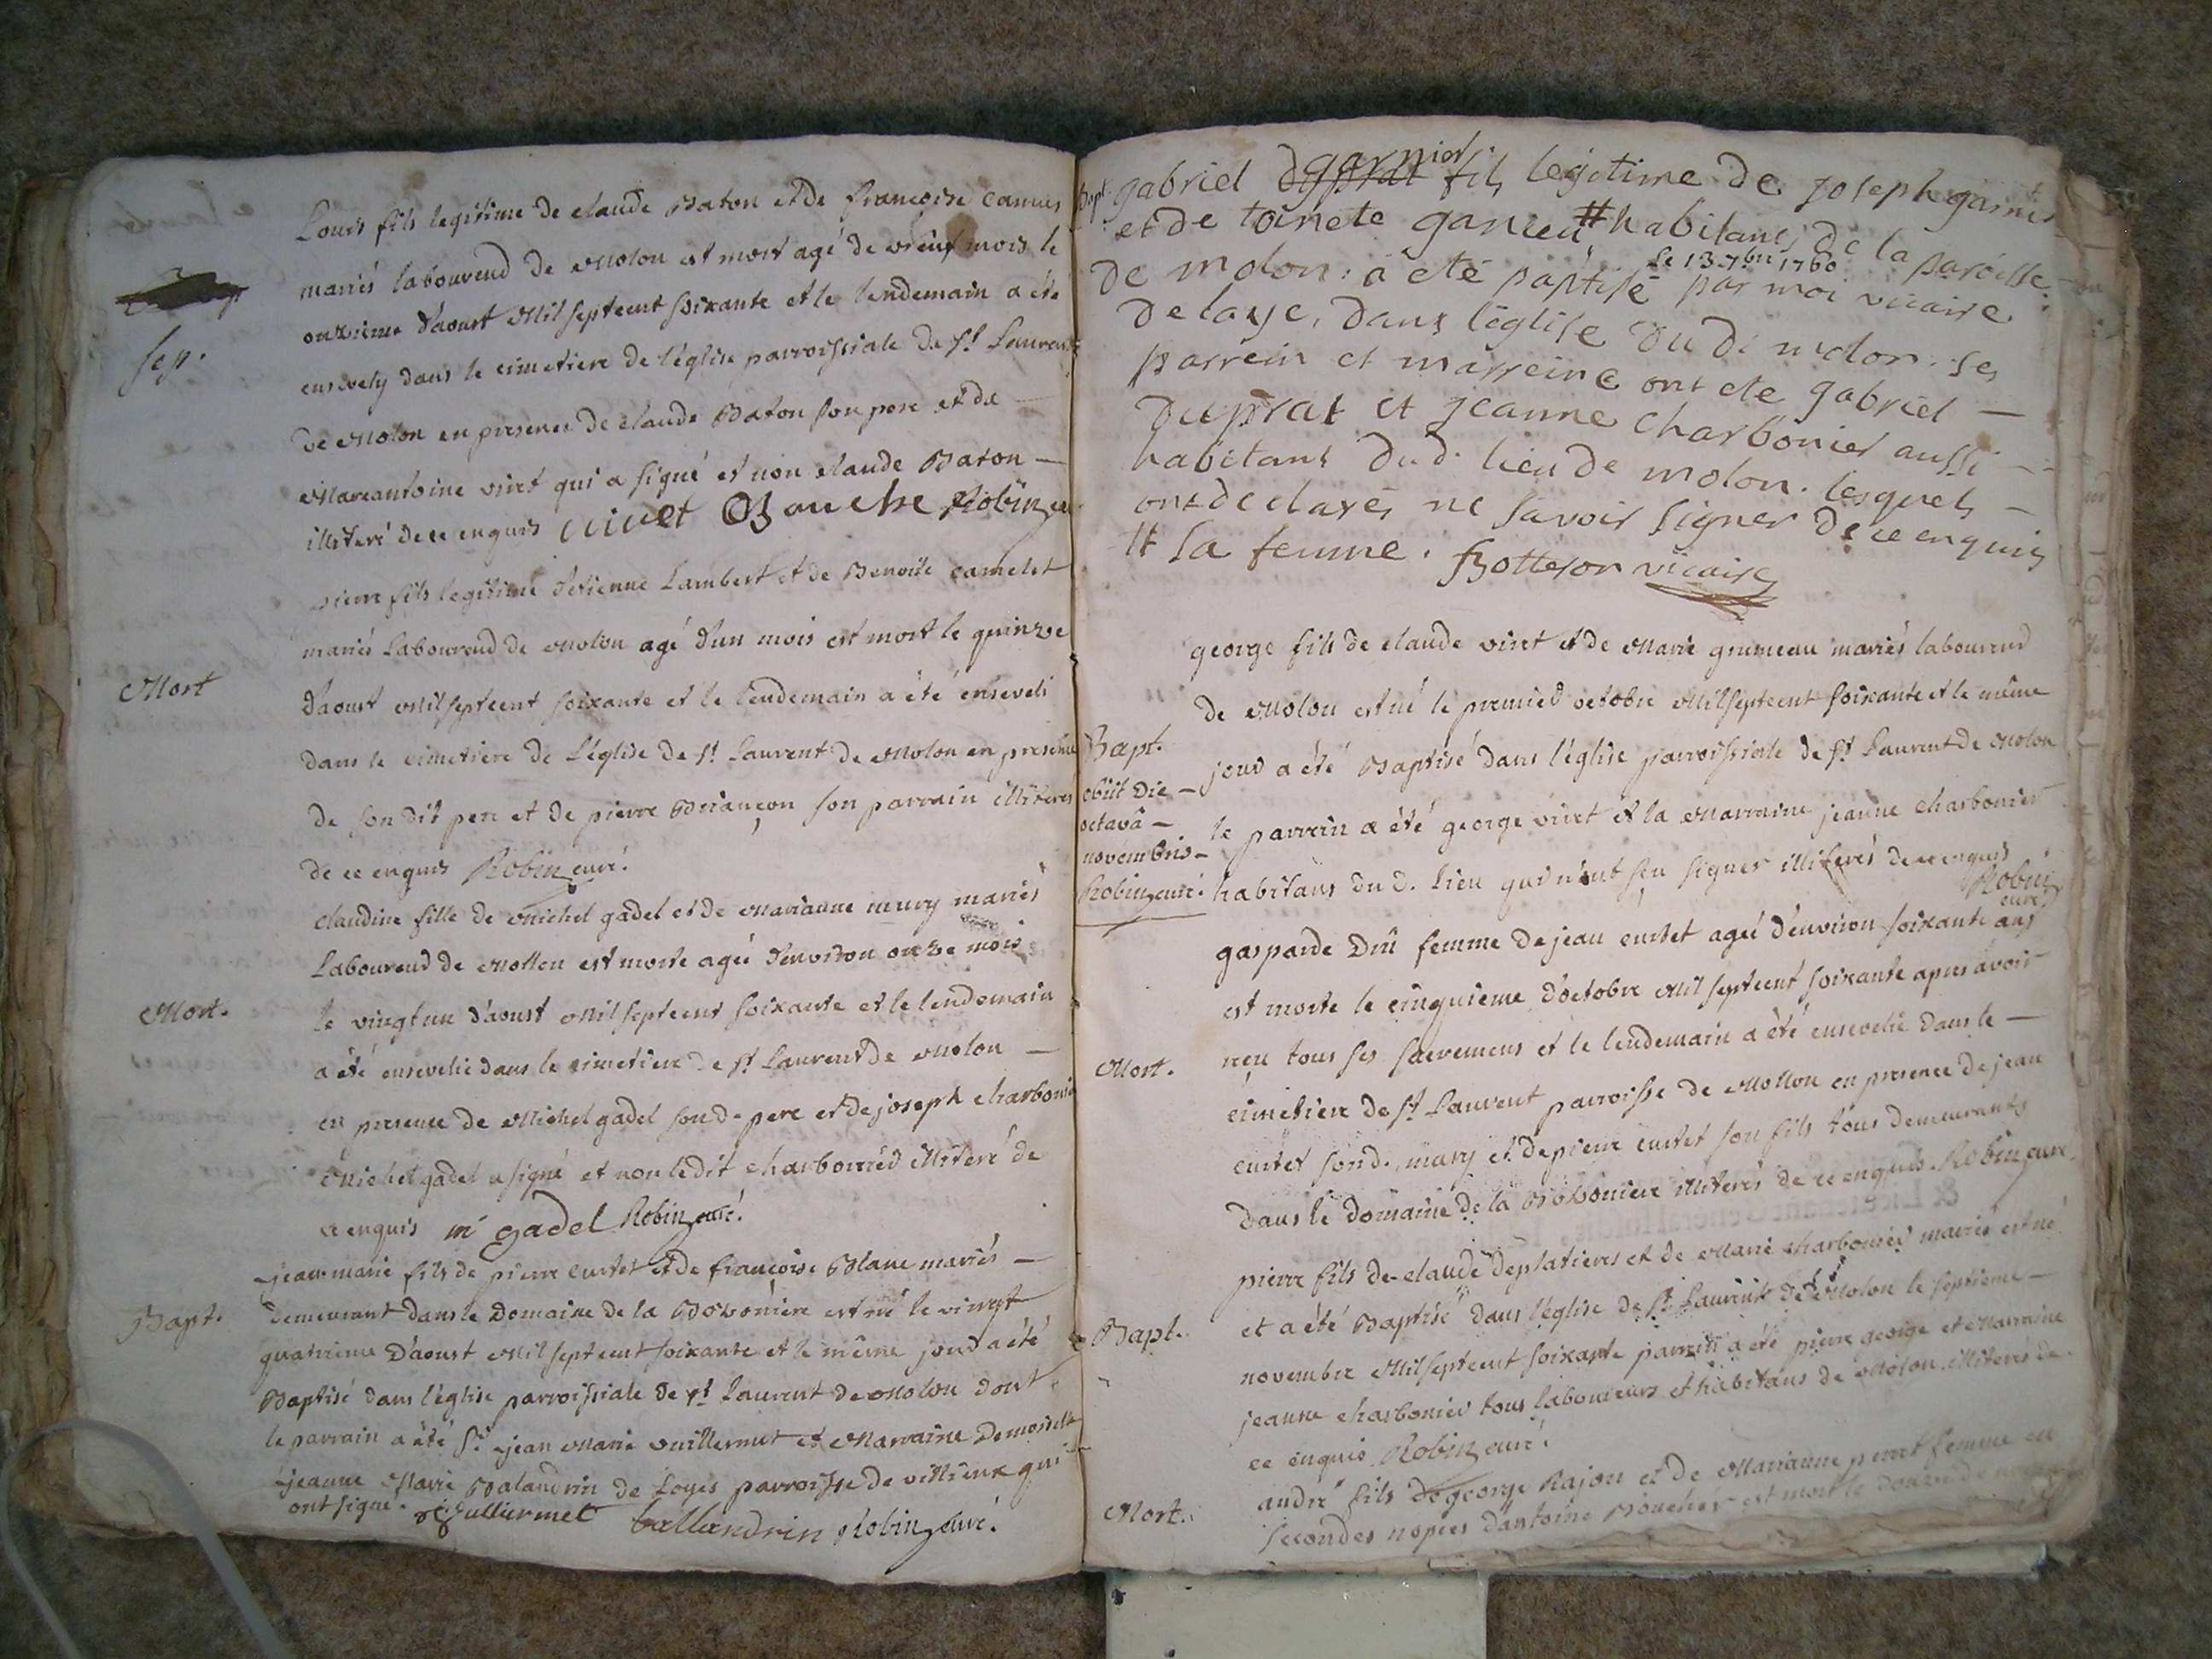 Louis fils legitime de claude Baton et de françoise camus
mariés laboureurs de Molon est mort agé de neuf mois le
onzieme d'aoust Mil sept cent soixante et le lendemain a été
sep.
ensevely dans le cimetiere de l'église parroissiale de St Laurent
de Molon en presence de claude Baton son pere et de —
Marcantoine viret qui a signé et non claude Baton —
illiteré de ce enquis Bouche Robin
pierre fils legitime d'etienne Lambert et de Benoite camelet
mariés Laboureurs de Molon agé d'un mois est mort le quinze
Mort
d'aoust Mil sept cent soixante et le lendemain a été enseveli
dans le cimetiere de L'église de St Laurent de Molon en presence
de son dit pere et de pierre Briançon son parrain illiteres
de ce enquis Robin curé.
claudine fille de Michel gadel et de Marianne mury mariés
Laboureurs de Mollon est morte agée d'environ onze mois
Mort.
le vingt un d'aoust Mil sept cent soixante et le lendemain
a été ensevelie dans le cimetiere de St Laurent de Molon —
en presence de Michel gadel sond. pere et de joseph charbonier
Michel gadel a signé et non ledit charbonier illiteré de
ce enquis m gadel Robin curé.
jean marie fils de pierre curtet et de françoise Blanc mariés —
Bapt.
demeurant dans le Domaine de la Bovoniere est né le vingt
quatrieme D'aoust Mil sept cent soixante et le même jour a été
Baptisé dans l'église parroissiale de St Laurent de Molon dont
le parrain a été Sr jean Marie vuillermet et Marraine Demoiselle
jeanne Marie Balandrin de Loyes parroisse de villieux qui
ont signé. Vulliermet ballandrin Robin curé.
Bapt. gabriel garnier fils legitime de joseph garnier
et de toinete # habitants de la paroisse
le 13 7bre 1760
de molon. a eté paptisé par moi vicaire
Delaye, dans l'église du d. molon. ses
parrein et marreine ont eté gabriel —
duprat et jeanne charbonier aussi —
habitans dud. lieu de molon. lesquels —
ont declarés ne savoir signer de ce enquis
# sa femme. Botteron vicaire
george fils de claude viret et de Marie grumeau mariés laboureurs
de Molon est né le premier octobre Mil sept cent soixante et le même
Bapt.
jour a été Baptisé dans l'église parroissiale de St Laurent de Molon
obiit die —
octavâ —
novembris —
Robin curé.
le parrein a été george viret et la Marraine jeanne charbonier
habitans du d. Lieu qui n'ont sçu signer illiterés de ce enquis
Robin
curé
gasparde Drû femme de jean curtet agée d'environ soixante ans
est morte le cinquieme d'octobre Mil sept cent soixante apres avoir
reçu tous ses sacremens et le lendemain a été ensevelie dans le —
Mort.
cimetiere de St Laurent parroisse de Mollon en presence de jean
curtet sond. mary et de pierre curtet son fils tous demeurants
dans le domaine de la Bovoniere illiterés de ce enquis. Robin curé.
pierre fils de claude deplatieres et de Marie charbonier mariés est né
et a été Baptisé dans l'église de St Laurent de Molon le septieme —
Bapt.
novembre Mil sept cent soixante parrein a été pierre george et Marraine
jeanne charbonier tous laboureurs et habitans de Molon illiteres de
ce enquis Robin curé.
andré fils de george Rajon et de Marianne peret femme en
Mort.
secondes nopces d'antoine Boucher est mort le